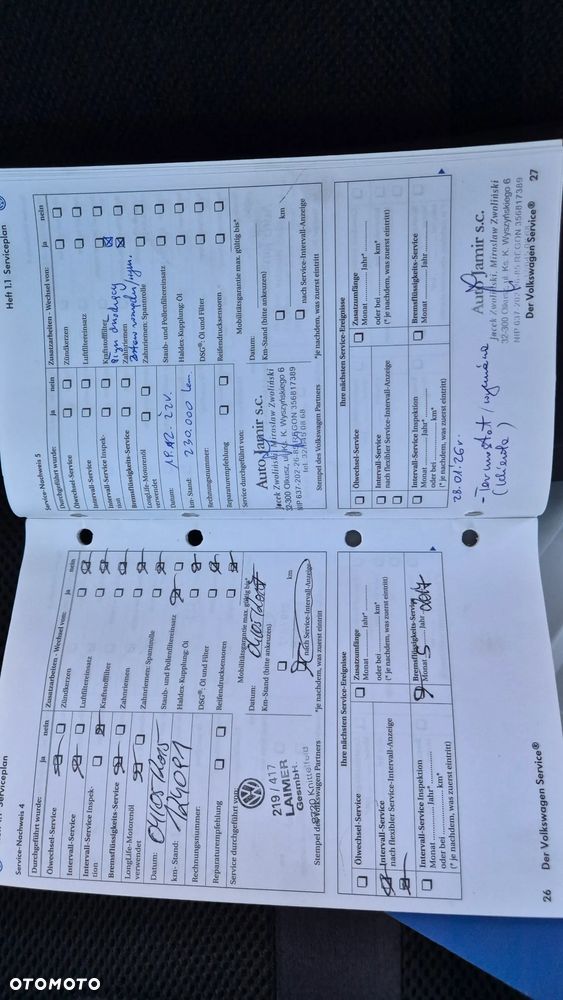 Serviceplan
Service-Nachweis 4
Durchgeführt wurde:
ja
nein
Ölwechsel-Service
Intervall-Service
Intervall-Service Inspek-
tion
Bremsflüssigkeits-Service
LongLife-Motorenöl
verwendet
Datum:
km-Stand: 124091
Rechnungsnummer:
Reparaturempfehlung
Service durchgeführt von:
219 / 417
LAIMER
GesmbH.
Knittelfeld
Stempel des Volkswagen Partners
Zusatzarbeiten - Wechsel von:
ja
nein
Zündkerzen
Luftfiltereinsatz
Kraftstofffilter
Zahnriemen
Zahnriemen: Spannrolle
Staub- und Pollenfiltereinsatz
Haldex-Kupplung: Öl
DSG®: Öl und Filter
Reifendrucksensoren
Mobilitätsgarantie max. gültig bis*
Datum:
Km-Stand (bitte ankreuzen)
km
nach Service-Intervall-Anzeige
*je nachdem, was zuerst eintritt
Ihre nächsten Service-Ereignisse
Ölwechsel-Service
Intervall-Service
nach flexibler Service-Intervall-Anzeige
Intervall-Service Inspektion
Monat .......... Jahr* ..........
oder bei .......... km*
(* je nachdem, was zuerst eintritt)
Zusatzumfänge
Monat .......... Jahr* ..........
oder bei .......... km*
(* je nachdem, was zuerst eintritt)
Bremsflüssigkeits-Service
Monat 5 Jahr 2017
26
Der Volkswagen Service®
Heft 1.1 Serviceplan
Service-Nachweis 5
Durchgeführt wurde:
ja
nein
Ölwechsel-Service
Intervall-Service
Intervall-Service Inspek-
tion
Bremsflüssigkeits-Service
LongLife-Motorenöl
verwendet
Datum: 19.12.22r.
km-Stand: 230.000 km.
Rechnungsnummer:
Reparaturempfehlung
Service durchgeführt von:
Auto Jamir s.c.
Jacek Zwoliński, Mirosław Zwoliński
32-300 Olkusz, ul. Ks. K. Wyszyńskiego 6
NIP 637-202-26-85 REGON 356817389
Stempel des Volkswagen Partners
Zusatzarbeiten - Wechsel von:
ja
nein
Zündkerzen
Luftfiltereinsatz
Kraftstofffilter
Zahnriemen
Zahnriemen: Spannrolle
Staub- und Pollenfiltereinsatz
Haldex-Kupplung: Öl
DSG®: Öl und Filter
Reifendrucksensoren
Mobilitätsgarantie max. gültig bis*
Datum:
Km-Stand (bitte ankreuzen)
km
nach Service-Intervall-Anzeige
*je nachdem, was zuerst eintritt
Ihre nächsten Service-Ereignisse
Ölwechsel-Service
Intervall-Service
nach flexibler Service-Intervall-Anzeige
Intervall-Service Inspektion
Monat .......... Jahr* ..........
oder bei .......... km*
(* je nachdem, was zuerst eintritt)
Zusatzumfänge
Monat .......... Jahr* ..........
oder bei .......... km*
(* je nachdem, was zuerst eintritt)
Bremsflüssigkeits-Service
Monat .......... Jahr ..........
28.01.26r.
- Termostat / wymiana
Auto Jamir s.c.
Jacek Zwoliński, Mirosław Zwoliński
32-300 Olkusz, ul. Ks. K. Wyszyńskiego 6
NIP 637-202-26-85 REGON 356817389
Der Volkswagen Service®
27
OTOMOTO